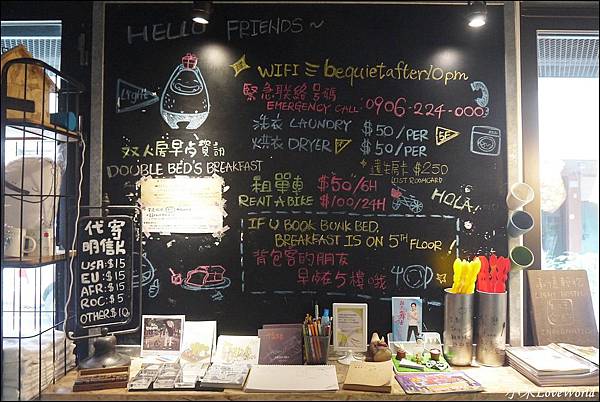 HELLO FRIENDS~
WIFI bequietafter10pm
緊急聯絡號碼
EMERGENCY CALL: 0906-224-000
Light
洗衣 LAUNDRY $50/PER
烘衣 DRYER $50/PER
5F
遺失房卡 $250
LOST ROOMCARD
双人房早点資訊
DOUBLE BED'S BREAKFAST
租單車 $50/6H
RENT A BIKE $100/24H
HOLA!
IF U BOOK BUNK BED,
BREAKFAST IS ON 5TH FLOOR!
背包客的朋友
早点在5樓哦
代寄
明信片
USA:$15
EU:$15
AFR:$15
ROC:$5
OTHER:$10
小米LoveWorld